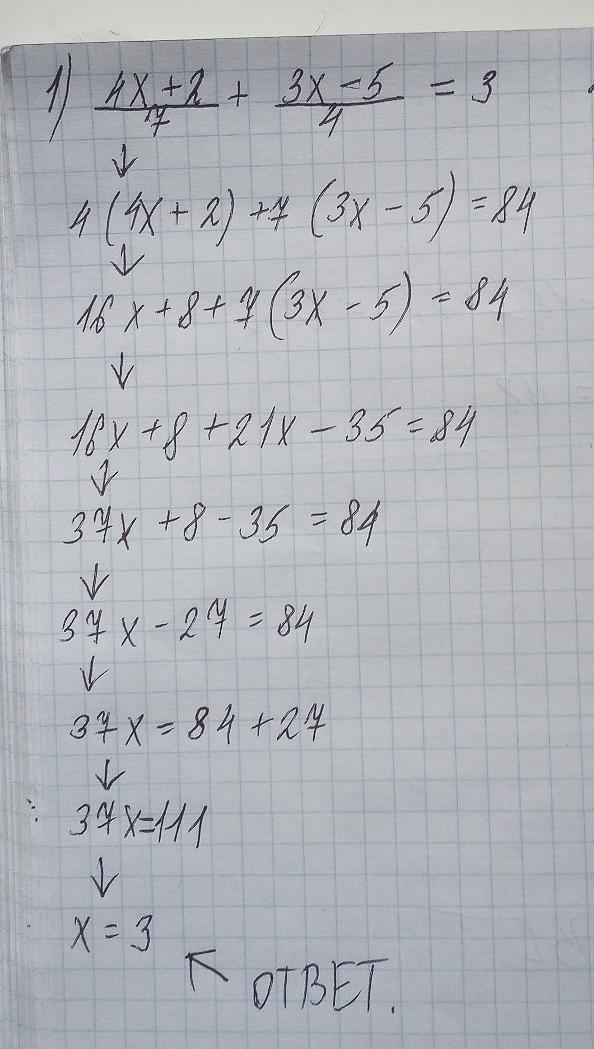 1) (4x+2)/7 + (3x-5)/4 = 3
↓
4(4x+2)+7(3x-5)=84
↓
16x+8+7(3x-5)=84
↓
16x+8+21x-35=84
↓
37x+8-35=84
↓
37x-27=84
↓
37x=84+27
↓
37x=111
↓
x=3
↖ ОТВЕТ.